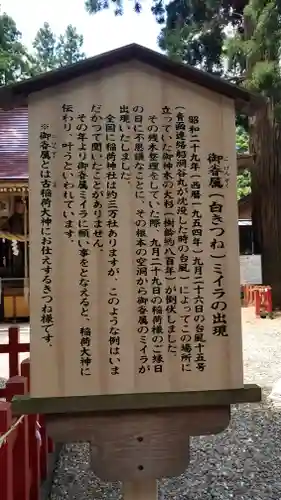 御香属（白きつね）ミイラの出現
こうぞく
昭和二十九年（西暦一九五四年）九月二十六日の台風十五号
（青函連絡船洞谷丸が沈没した時の台風）によってこの場所に
立っていた御神木の大杉（樹齢約八百年）が倒伏しました。
その残木整理をしていた際、九月二十九日の稲荷様のご縁日
の日に不思議なことに、その根本の空洞から御香属のミイラが
出現いたしました。
全国に稲荷神社は約三万社ありますが、このような例はいま
だかつて聞いたことがありません。
その年より、御香属ミイラに願い事をとなえると、稲荷大神に
伝わり、叶うといわれています。
※御香属とは古稲荷大神にお仕えするきつね様です。